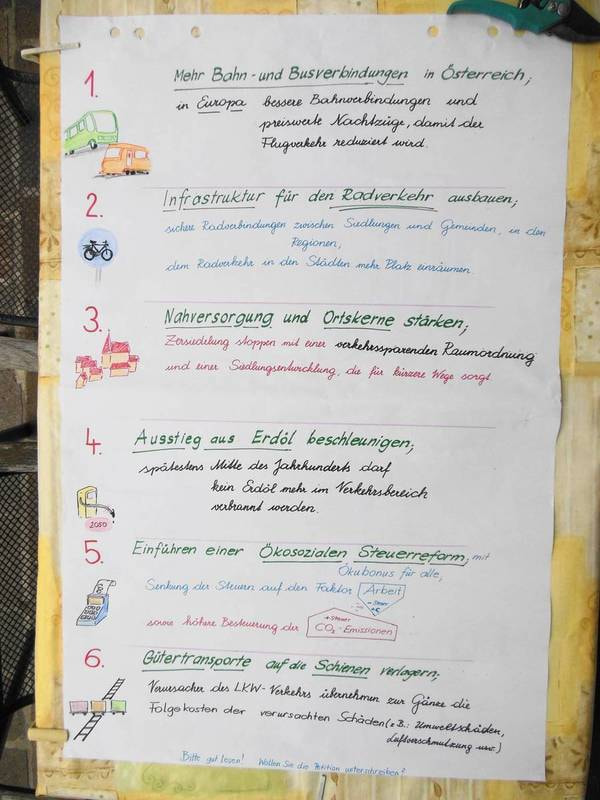 1. Mehr Bahn- und Busverbindungen in Österreich;
in Europa bessere Bahnverbindungen und
preiswerte Nachtzüge, damit der
Flugverkehr reduziert wird.
2. Infrastruktur für den Radverkehr ausbauen;
sichere Radverbindungen zwischen Siedlungen und Gemeinden, in den
Regionen,
dem Radverkehr in den Städten mehr Platz einräumen.
3. Nahversorgung und Ortskerne stärken;
Zersiedelung stoppen mit einer verkehrssparenden Raumordnung
und einer Siedlungsentwicklung, die für kürzere Wege sorgt.
4. Ausstieg aus Erdöl beschleunigen;
spätestens Mitte des Jahrhunderts darf
kein Erdöl mehr im Verkehrsbereich
verbrannt werden.
2050
5. Einführen einer Ökosozialen Steuerreform, mit
Ökobonus für alle,
Senkung der Steuern auf den Faktor Arbeit
- Steuer
-€
+ Steuer
sowie höhere Besteuerung der CO₂-Emissionen
6. Gütertransporte auf die Schienen verlagern;
Verursacher des LKW-Verkehrs übernehmen zur Gänze die
Folgekosten der verursachten Schäden (z.B.: Umweltschäden,
Luftverschmutzung usw.)
Bitte gut lesen! Wollen Sie die Petition unterschreiben?